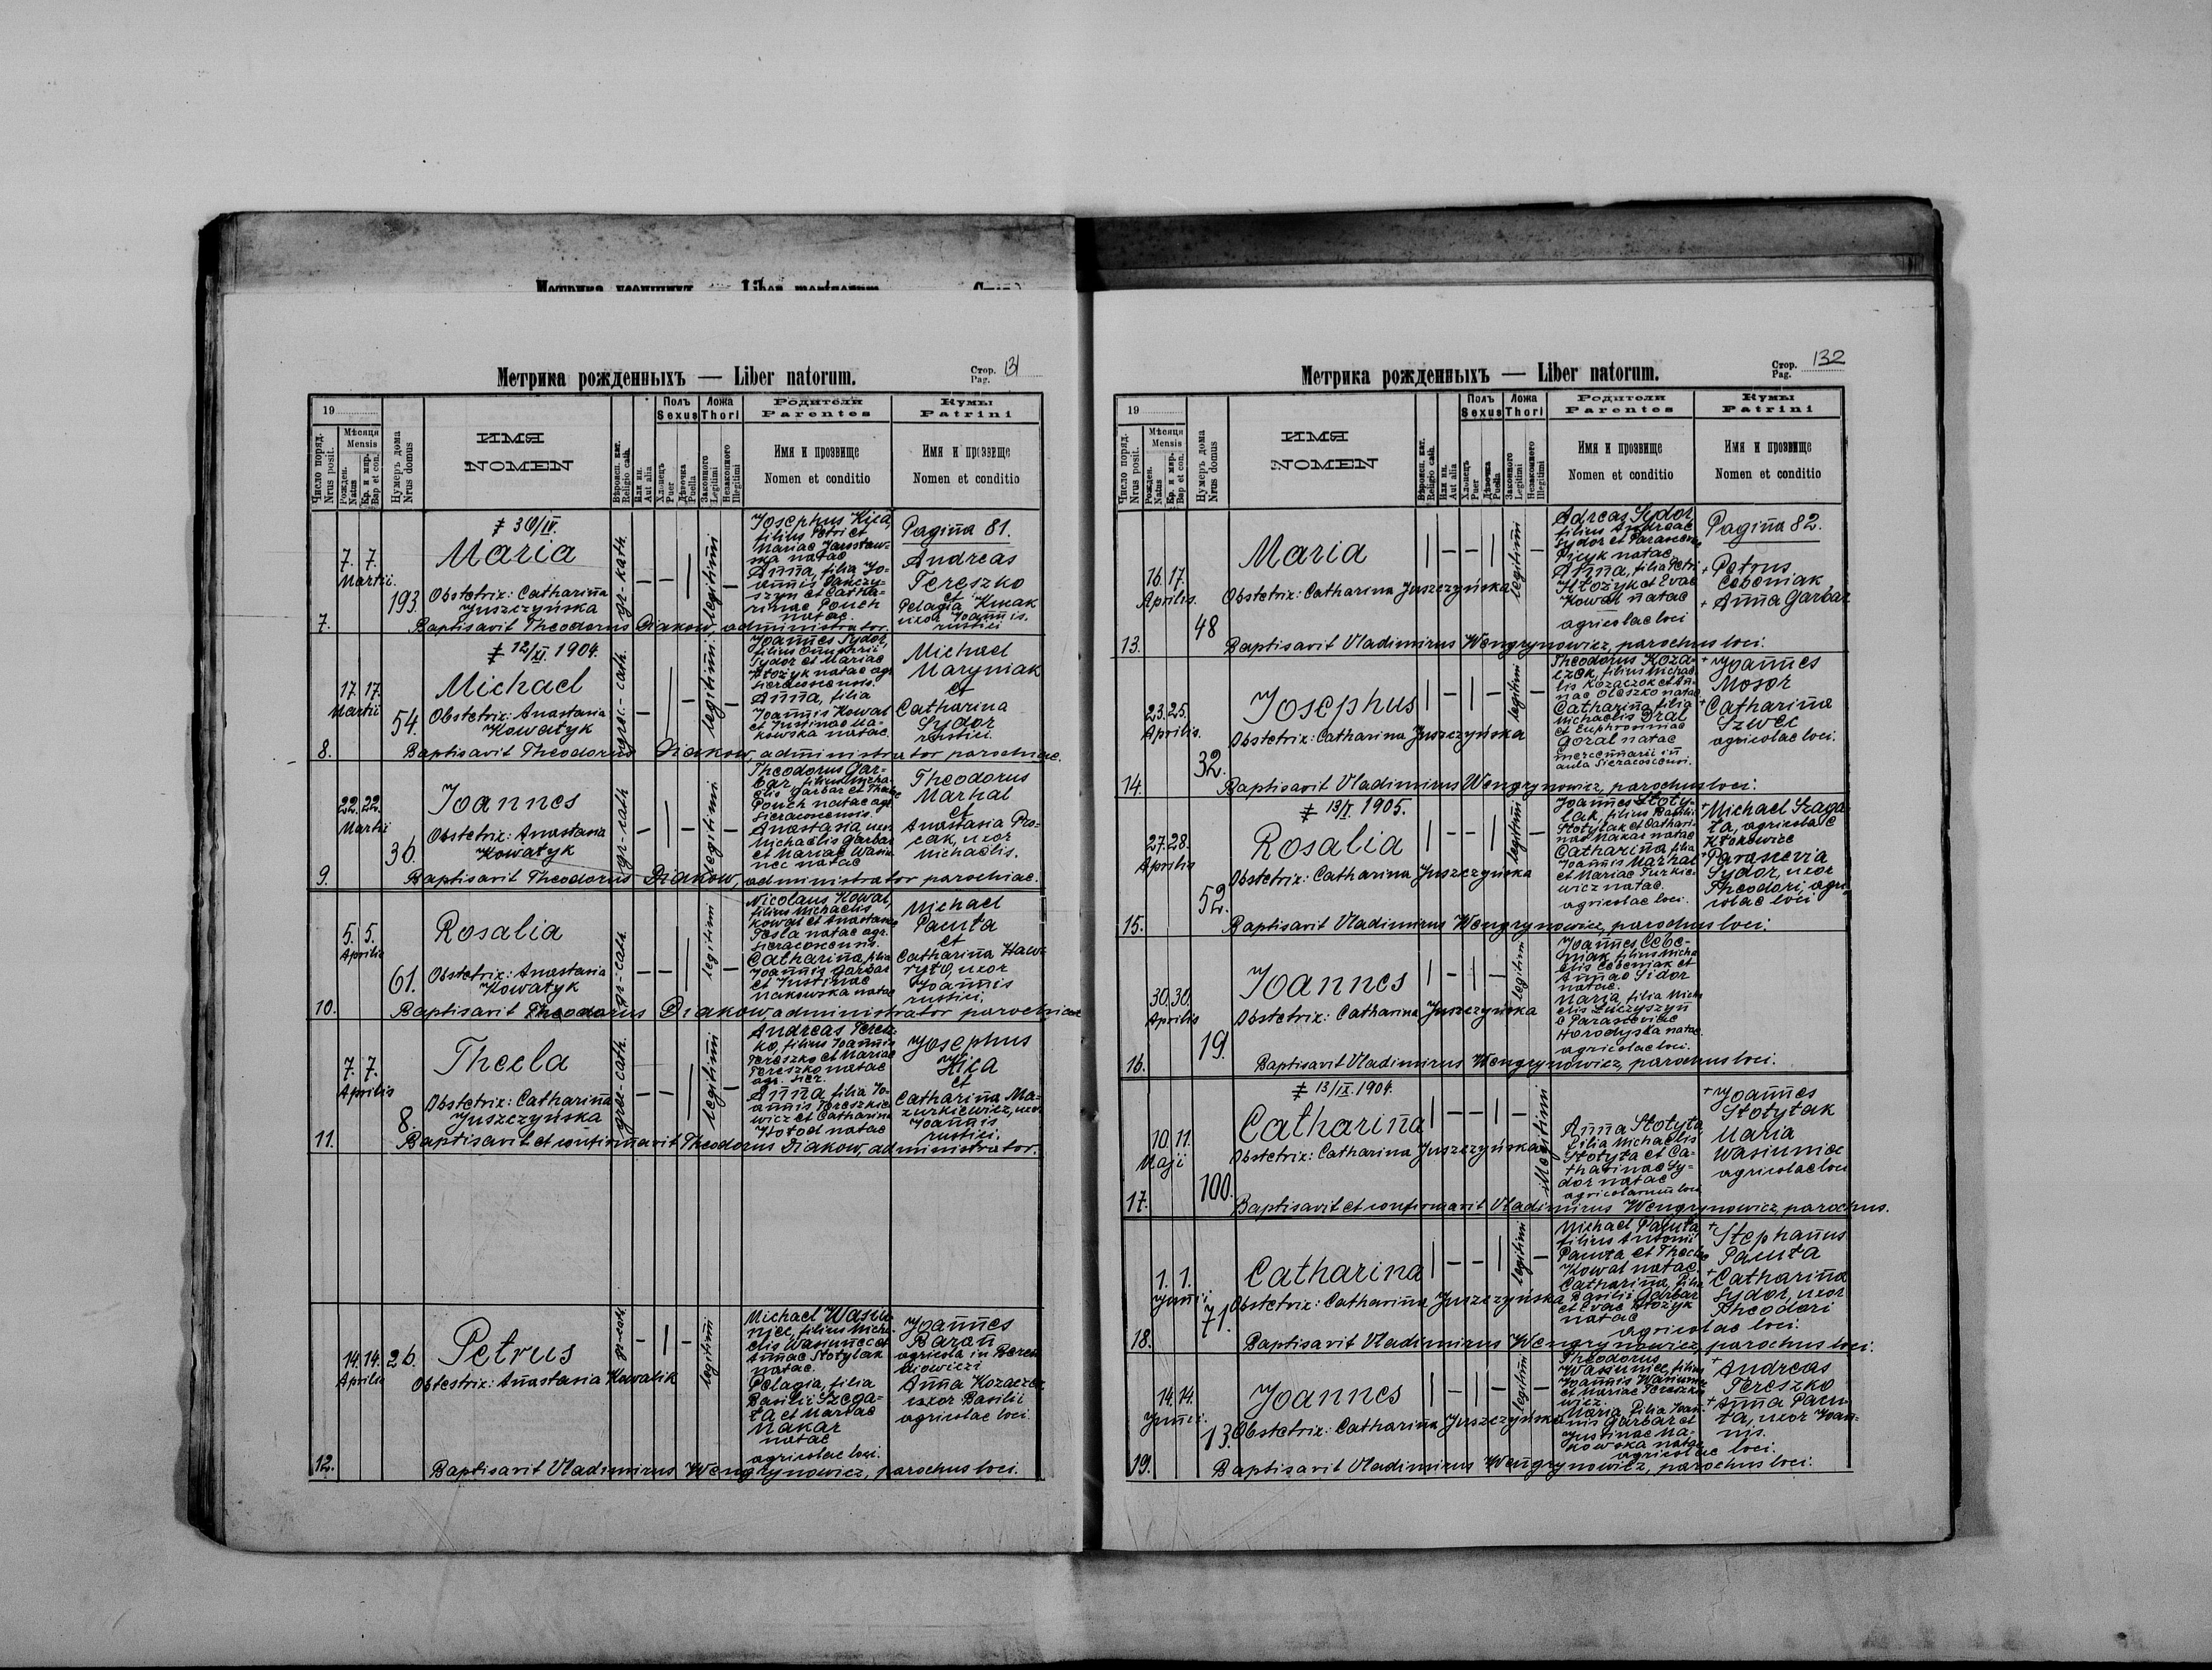 Метрика усопшихъ — Liber mortuorum
Метрика рожденныхъ — Liber natorum.
Стор. Pag. 131
19
Число поряд. Nrus posit.
Мѣсяця Mensis
Рожден. Natus
Кр. и мѵр. Bap et con.
Нумеръ дома Nrus domus
ИМЯ
NOMEN
Вѣроисп. кат. Religio cath.
Или ин. Aut alia
Полъ Sexus
Хлопецъ Puer
Дѣвочка Puella
Ложа Thori
Законного Legitimi
Незаконного Illegitimi
Родители
Parentes
Имя и прозвище
Nomen et conditio
Кумы
Patrini
Имя и прозвище
Nomen et conditio
7.
7. 7.
Martii.
193.
‡ 30/IV.
Maria
Obstetrix: Catharina
Juszczyńska
gr-kath.
legitimi
Josephus Kica,
filius Petri et
Mariae Jarosław-
ska natae
Anna, filia Jo-
annis Danczy-
szyn et Catha-
rinae Pouch
natae.
Pagina 81.
Andreas
Tereszko
et
Pelagia Kmak
uxor Joannis.
rustici
Baptisavit Theodorus Diakow, administrator.
8.
17. 17.
Martii
54.
‡ 12/XI. 1904.
Michael
Obstetrix: Anastasia
Kowałyk
legitimi
Joannes Sydor,
filius Onuphrii
Sydor et Mariae
Hłożyk natae agr.
Sieracoscensis.
Anna, filia
Joannis Kowal
et Justinae Ma-
kowska natae.
Michael
Maryniak
et
Catharina
Sydor
rustici.
Baptisavit Theodorus Diakow, administrator parochiae.
9.
22. 22.
Martii
36.
Joannes
Obstetrix: Anastasia
Kowałyk
gr-kath
legitimi
Theodorus Gar-
bar, filius Micha-
elis Garbar et Theclae
Pouch natae agr.
Sieracoscensis.
Anastasia, uxor
Michaelis Garbar
et Mariae Wasiu-
nec natae
Theodorus
Marhal
et
Anastasia Pro-
cak, uxor
Michaelis.
Baptisavit Theodorus Diakow, administrator parochiae.
10.
5. 5.
Aprilis
61.
Rosalia
Obstetrix: Anastasia
Kowałyk
gr-cath.
legitimi
Nicolaus Kowal,
filius Michaelis
Kowal et Anastasiae
Tesla natae agr.
Sieracoscensis.
Catharina, filia
Joannis Garbar
et Justinae
Makowska natae
Michael
Pauta
et
Catharina Haw-
ryło, uxor
Joannis
rustici.
Baptisavit Theodorus Diakow administrator parochiae
11.
7. 7.
Aprilis
8.
Thecla
Obstetrix: Catharina
Juszczyńska
grae-cath.
legitimi
Andreas Teresz-
ko, filius Joannis
Tereszko et Mariae
Tereszko natae
agr. Sier.
Anna filia Jo-
annis Tereszkie-
wicz et Catharina
Hołod natae
Josephus
Kica
et
Catharina Ma-
zurkiewicz, uxor
Joannis
rustici.
Baptisavit et confirmavit Theodorus Diakow, administrator.
12.
14. 14.
Aprilis
26.
Petrus
Obstetrix: Anastasia Kowalik
gr-cath.
legitimi
Michael Wasiu-
niec, filius Micha-
elis Wasiuniec et
Annae Stotylak
natae.
Pelagia, filia
Basilii Szega-
ta et Mariae
Makar
natae
agricolae loci.
Joannes
Baran
agricola in Beren-
diowiczi
Anna Kozaczek
uxor Basilii
agricolae loci.
Baptisavit Vladimirus Wengrynowicz, parochus loci.
Метрика рожденныхъ — Liber natorum.
Стор. Pag. 132
19
Число поряд. Nrus posit.
Мѣсяця Mensis
Рожден. Natus
Кр. и мѵр. Bap et con.
Нумеръ дома Nrus domus
ИМЯ
NOMEN
Вѣроисп. кат. Religio cath.
Или ин. Aut alia
Полъ Sexus
Хлопецъ Puer
Дѣвочка Puella
Ложа Thori
Законного Legitimi
Незаконного Illegitimi
Родители
Parentes
Имя и прозвище
Nomen et conditio
Кумы
Patrini
Имя и прозвище
Nomen et conditio
13.
16. 17.
Aprilis.
48
Maria
Obstetrix: Catharina Juszczyńska
legitimi
Adreas Sydor,
filius Andreae
Sydor et Parasceviae
Picyk natae.
Anna, filia Petri
Hłożyk et Evae
Kowal natae
agricolae loci
Pagina 82.
+ Petrus
Cebeniak
+ Anna Garbar
Baptisavit Vladimirus Wengrynowicz, parochus loci.
14.
23. 25.
Aprilis.
32.
Josephus
Obstetrix: Catharina Juszczyńska
legitimi
Theodorus Koza-
czok, filius Michae-
lis Kozaczok et An-
nae Oleszko natae.
Catharina, filia
Michaelis Dral
et Euphrosinae
Goral natae
mercennarii in
aula Sieracoscensi.
+ Joannes
Mosor
+ Catharina
Szwec
agricolae loci.
Baptisavit Vladimirus Wengrynowicz, parochus loci.
15.
27. 28.
Aprilis
52.
‡ 13/X. 1905.
Rosalia
Obstetrix: Catharina Juszczyńska
legitimi
Joannes Stoty-
lak, filius Basilii
Stotylak et Cathari-
nae Makar natae
Catharina, filia
Joannis Marhal
et Mariae Turkie-
wicz natae.
agricolae loci.
+ Michael Szaga-
ta, agricola e
Kłokowice
+ Parascevia
Sydor, uxor
Theodori, agri-
colae loci
Baptisavit Vladimirus Wengrynowicz, parochus loci.
16.
30. 30.
Aprilis
19.
Joannes
Obstetrix: Catharina Juszczyńska
legitimi
Joannes Cebe-
niak filius Micha-
elis Cebeniak et
Annae Sidor
natae.
Maria, filia Micha-
elis Luczyszyn
e Parasceviae
Horodyska natae.
agricolae loci.
Baptisavit Vladimirus Wengrynowicz, parochus loci.
17.
10. 11.
Maji
100.
‡ 13/IX. 1904.
Catharina
Obstetrix: Catharina Juszczyńska
illegitimi
Anna Stotyta,
filia Michaelis
Stotyta et Ca-
tharinae Sy-
dor natae
agricolarum loci
+ Joannes
Stotylak
Maria
Wasiuniec
agricolae loci
Baptisavit et confirmavit Vladimirus Wengrynowicz, parochus.
18.
1. 1.
Junii
71.
Catharina
Obstetrix: Catharina Juszczyńska
legitimi
Michael Pauta,
filius Antonii
Pauta et Theclae
Kowal natae.
Catharina, filia
Basilii Garbar
et Evae Hłożyk
natae
agricolae loci.
+ Stephanus
Pauta
+ Catharina
Sydor, uxor
Theodori
Baptisavit Vladimirus Wengrynowicz, parochus loci.
19.
14. 14.
Junii.
13.
Joannes
Obstetrix: Catharina Juszczyńska
legitimi
Theodorus
Wasiuniec, filius
Joannis Wasiuniec
et Mariae Tereszkie-
wicz.
Maria, filia Joan-
nis Garbar et
Justinae Ma-
kowska natae
agricolae loci.
+ Andreas
Tereszko
+ Anna Pau-
ta, uxor Joan-
nis.
Baptisavit Vladimirus Wengrynowicz, parochus loci.